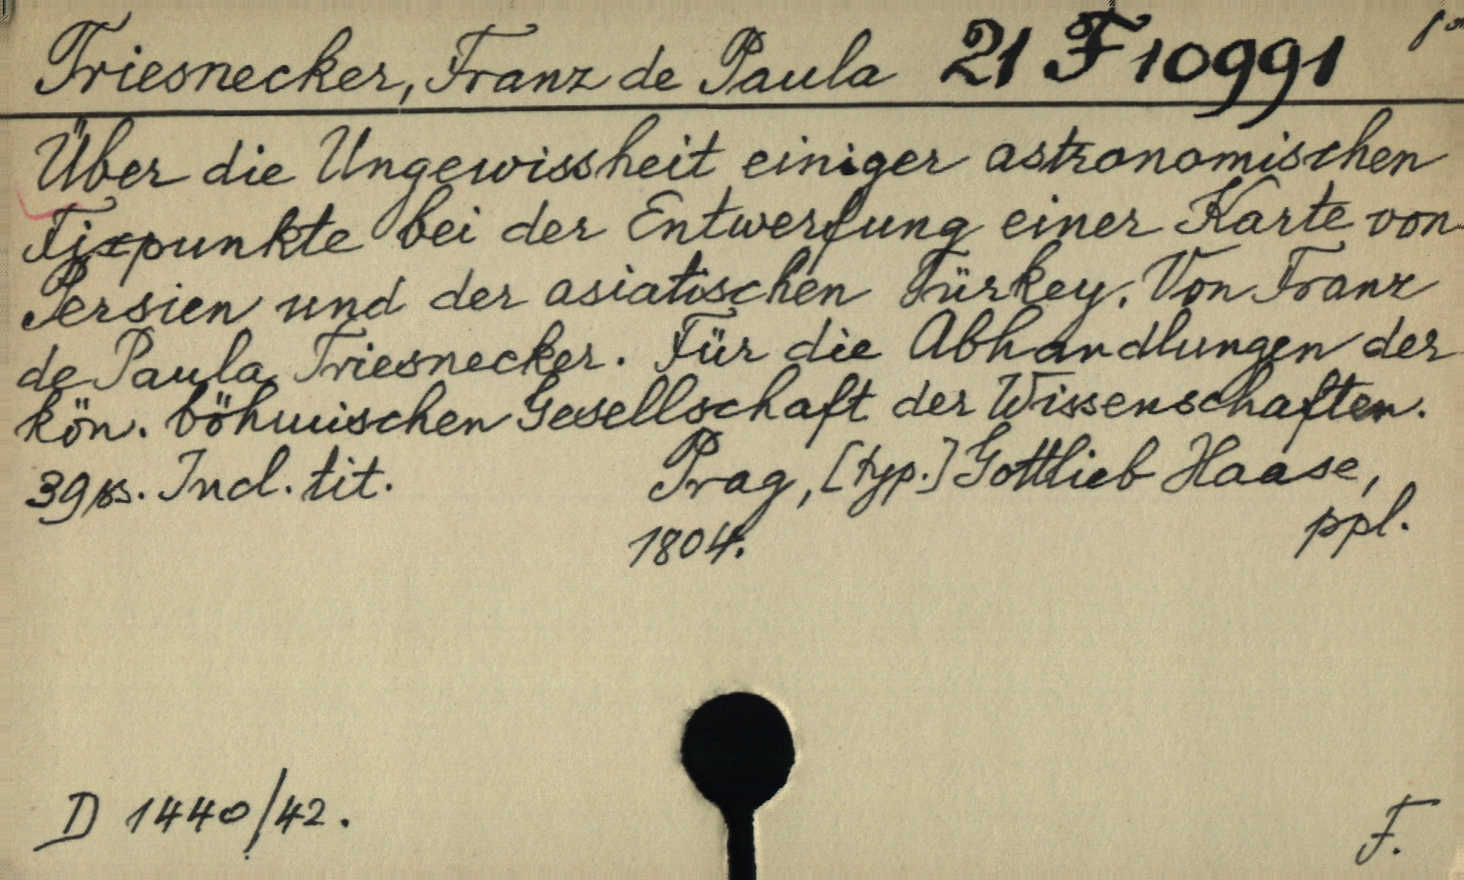 Triesnecker, Franz de Paula 21 F 10991
Über die Ungewissheit einiger astronomischen
Fixpunkte bei der Entwerfung einer Karte von
Persien und der asiatischen Türkey. Von Franz
de Paula Triesnecker. Für die Abhandlungen der
kön. böhmischen Gesellschaft der Wissenschaften.
39 ps. Incl. tit. Prag, [typ.] Gottlieb Haase,
1804. ppl.
D 1440/42. F.